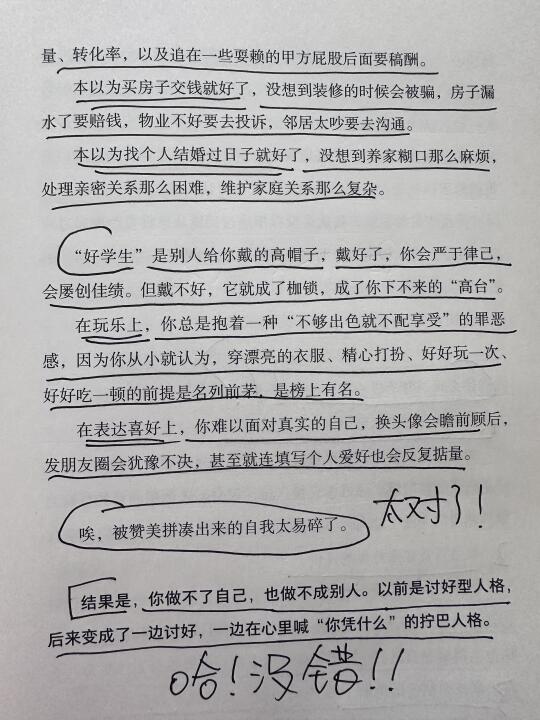 量、转化率，以及追在一些耍赖的甲方屁股后面要稿酬。
本以为买房子交钱就好了，没想到装修的时候会被骗，房子漏
水了要赔钱，物业不好要去投诉，邻居太吵要去沟通。
本以为找个人结婚过日子就好了，没想到养家糊口那么麻烦，
处理亲密关系那么困难，维护家庭关系那么复杂。
“好学生”是别人给你戴的高帽子，戴好了，你会严于律己，
会屡创佳绩。但戴不好，它就成了枷锁，成了你下不来的“高台”。
在玩乐上，你总是抱着一种“不够出色就不配享受”的罪恶
感，因为你从小就认为，穿漂亮的衣服、精心打扮、好好玩一次、
好好吃一顿的前提是名列前茅，是榜上有名。
在表达喜好上，你难以面对真实的自己，换头像会瞻前顾后，
发朋友圈会犹豫不决，甚至就连填写个人爱好也会反复掂量。
太对了！
唉，被赞美拼凑出来的自我太易碎了。
结果是，你做不了自己，也做不成别人。以前是讨好型人格，
后来变成了一边讨好，一边在心里喊“你凭什么”的拧巴人格。
哈！没错！！